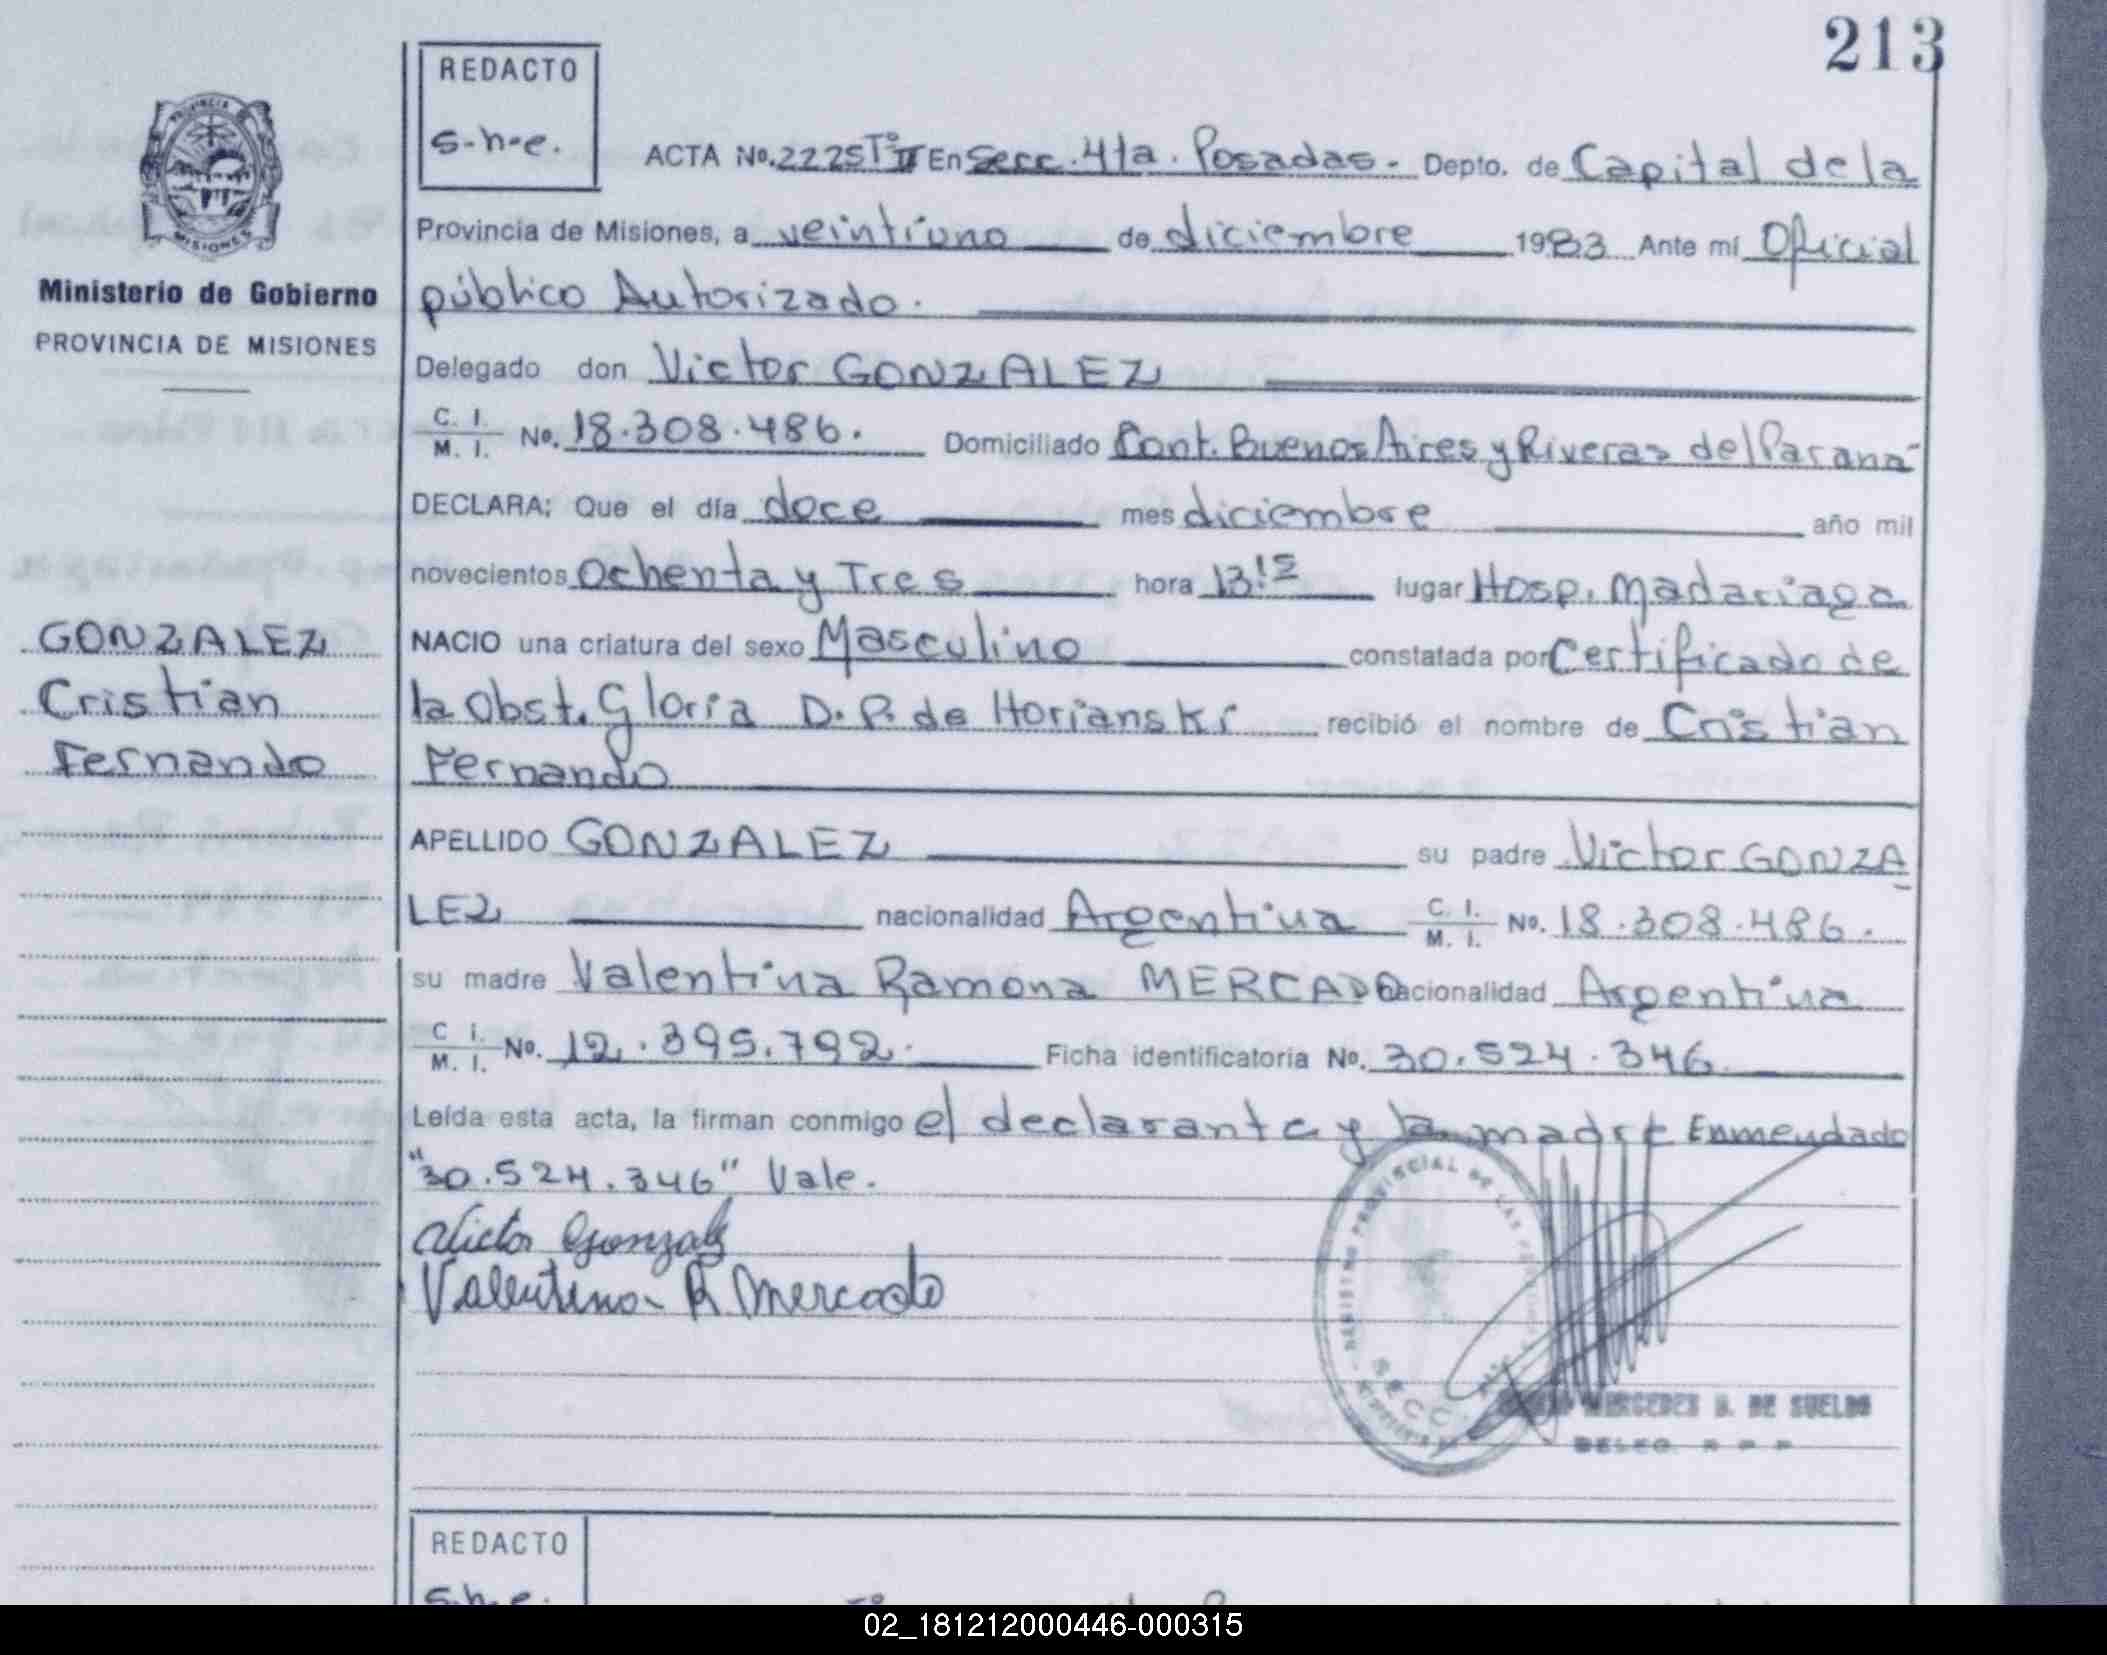 213
REDACTO
s.h.e.
PROVINCIA DE MISIONES
Ministerio de Gobierno
PROVINCIA DE MISIONES
ACTA No. 2225 Tº II En Secc. 4ta. Posadas. Depto. de Capital de la
Provincia de Misiones, a veintiuno de diciembre 1983 Ante mí Oficial
público Autorizado.
Delegado don Victor GONZALEZ
C. I. M. I. No. 18.308.486. Domiciliado Cont. Buenos Aires y Riveras del Parana
DECLARA; Que el día doce mes diciembre año mil
novecientos Ochenta y Tres hora 13:15 lugar Hosp. Madariaga
NACIO una criatura del sexo Masculino constatada por Certificado de
la Obst. Gloria D. P. de Horianski recibió el nombre de Cristian
Fernando
GONZALEZ
Cristian
Fernando
APELLIDO GONZALEZ su padre Victor GONZA
LEZ nacionalidad Argentina C. I. M. I. No. 18.308.486.
su madre Valentina Ramona MERCADO nacionalidad Argentina
C. I. M. I. No. 12.395.792. Ficha identificatoria No. 30.524.346
Leída esta acta, la firman conmigo el declarante y la madre Enmendado
"30.524.346" Vale.
Victor Gonzalez
Valentina R Mercado
MERCEDES DE SUELDO
SECC
REDACTO
s.h.e.
02_181212000446-000315